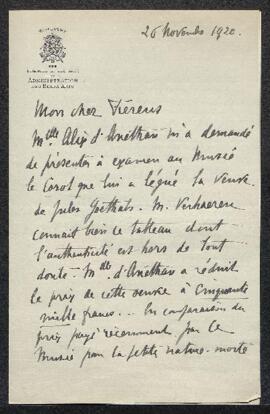 ADMINISTRATION
DES BEAUX-ARTS
26 Novembre 1920.
Mon cher Fierens
Mlle Alix d'Anethan m'a demandé
de présenter à examen au Musée
le Corot que lui a légué la veuve
de Jules Goethals. M. Verhaeren
connait bien ce tableau dont
l'authenticité est hors de tout
doute. Mlle d'Anethan a réduit
le prix de cette oeuvre à cinquante
mille francs. En comparaison du
prix payé récemment par le
Musée pour la petite nature-morte